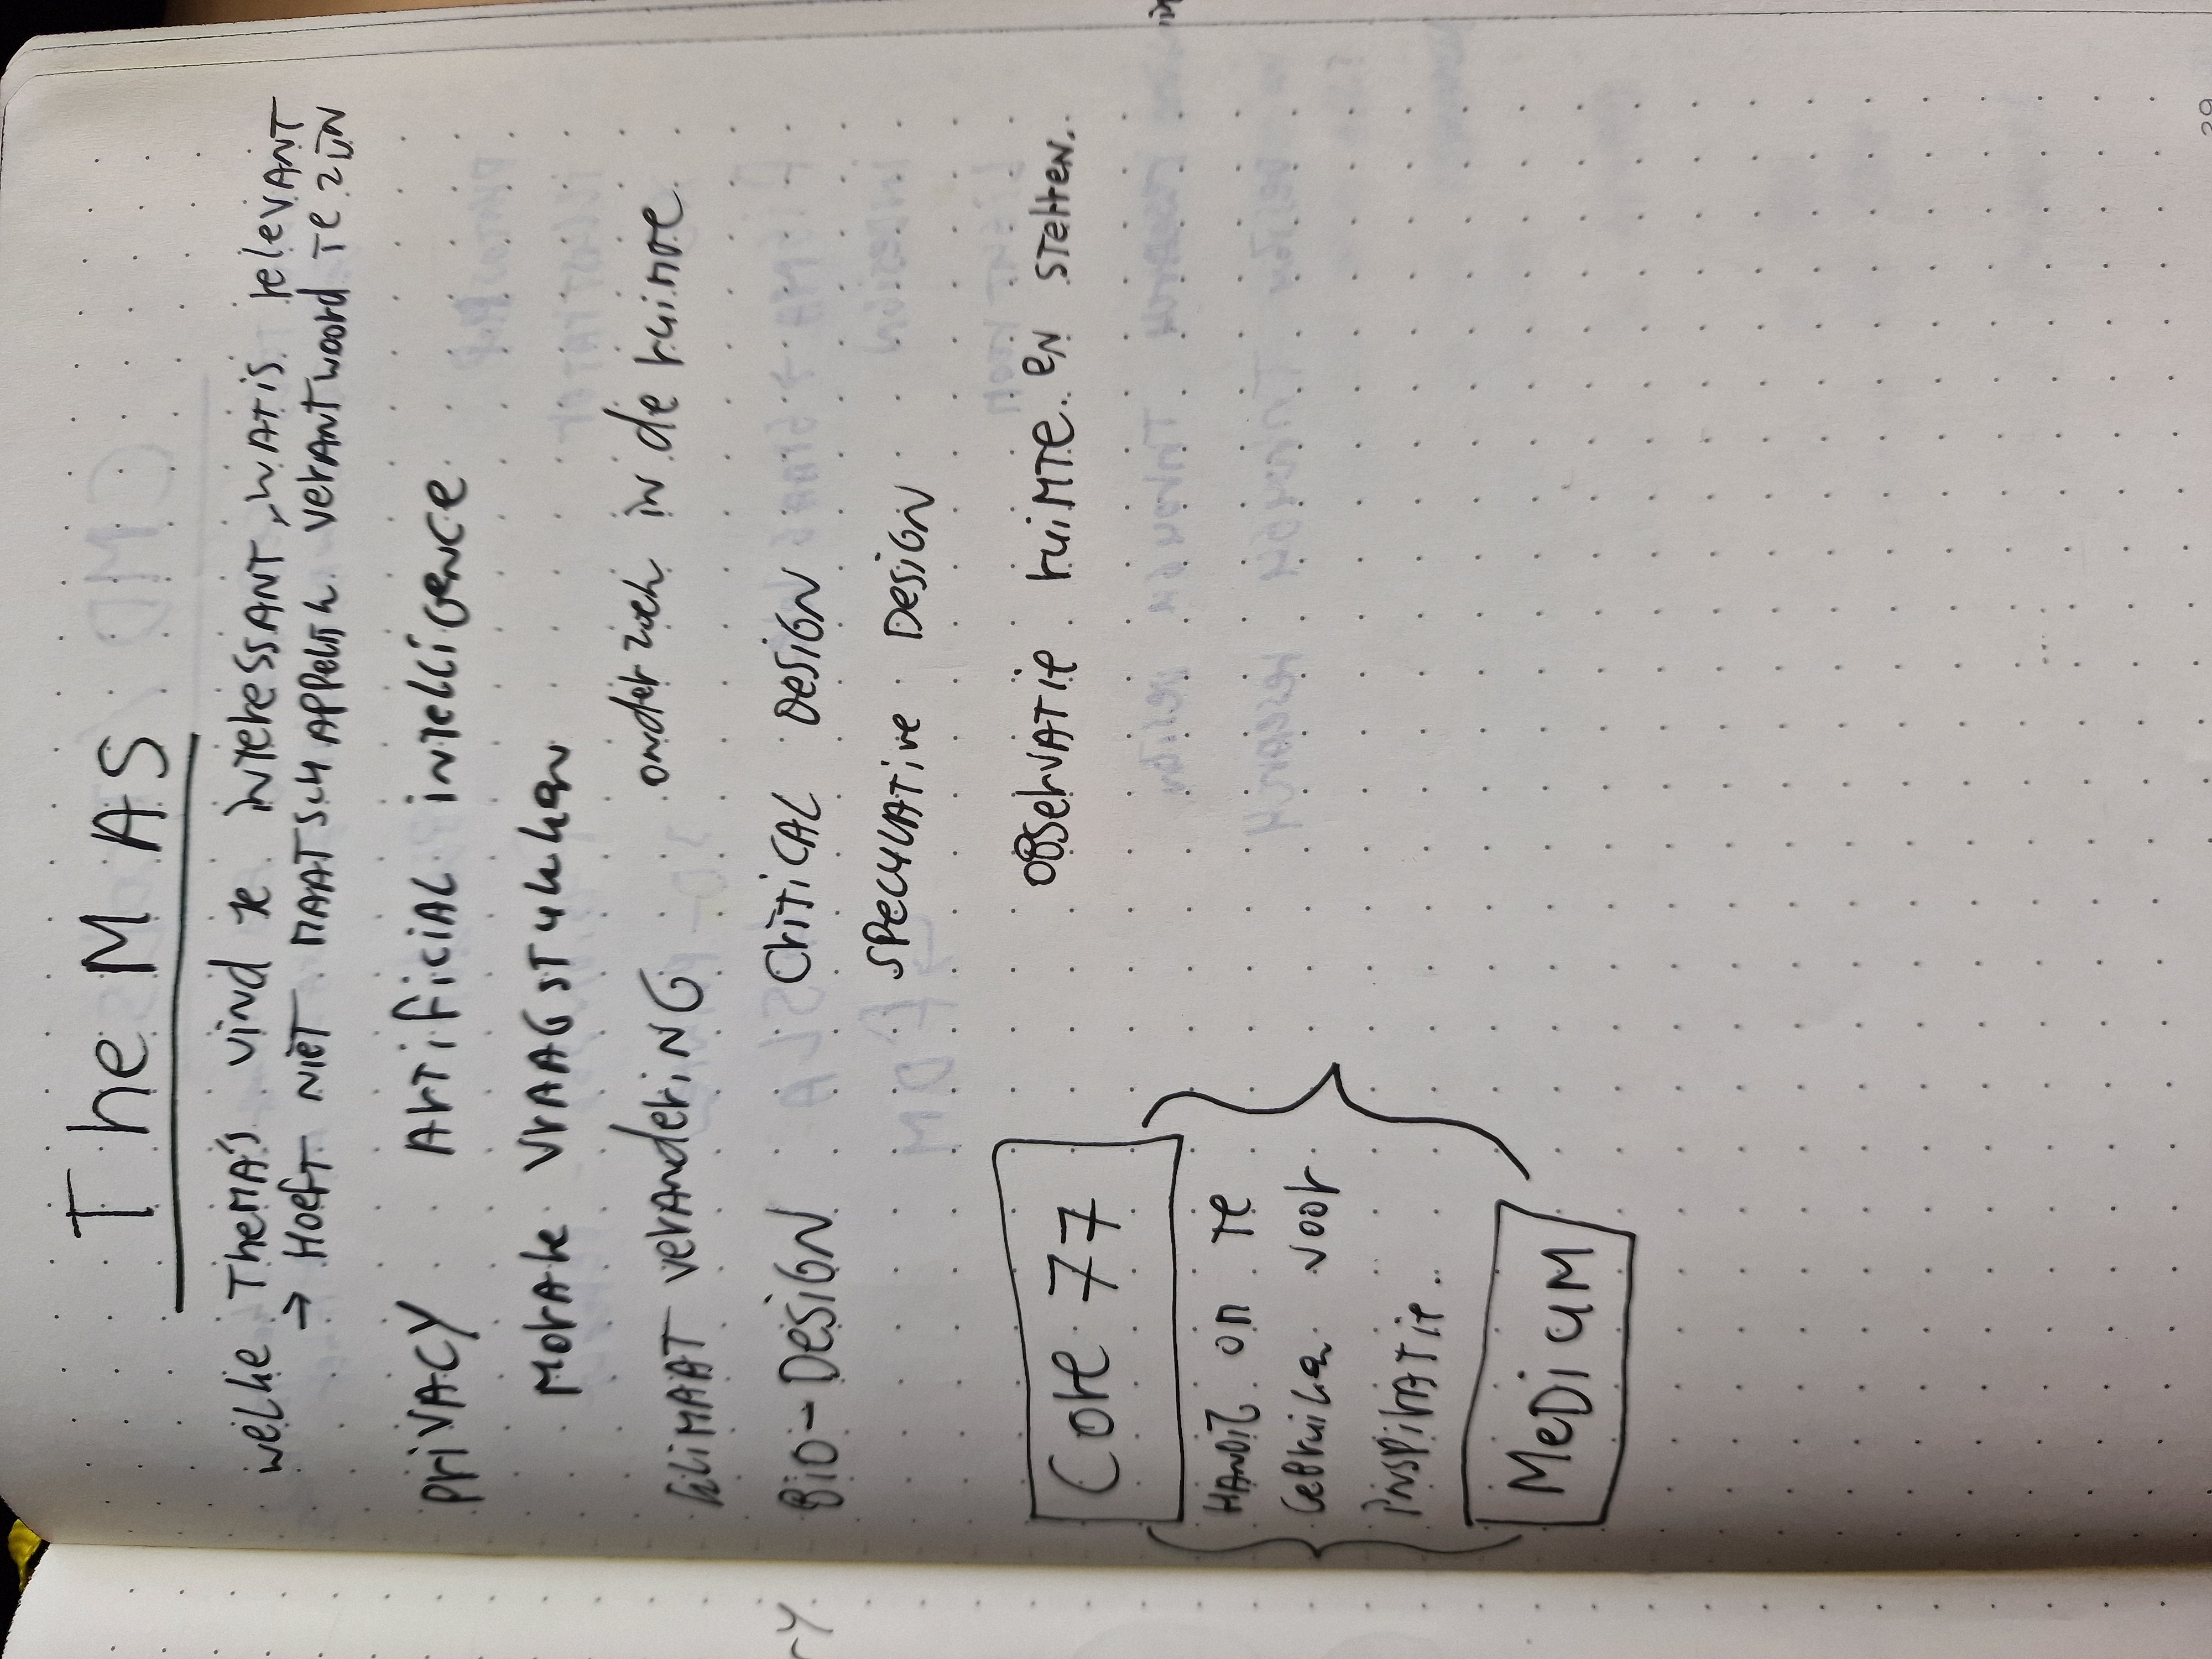 THeMAS
welke THEMA'S vind je interessant, wat is relevant
→ Hoeft niet maatschappelijk verantwoord te zijn
Privacy Artificial intelligence
Morale vraagstukken
klimaat verandering onderzoek in de ruimte
Bio-Design Critical Design
Speculative Design
Core 77 observatie ruimte en stellen.
Handig om te
gebruiken voor
inspiratie.
Medium